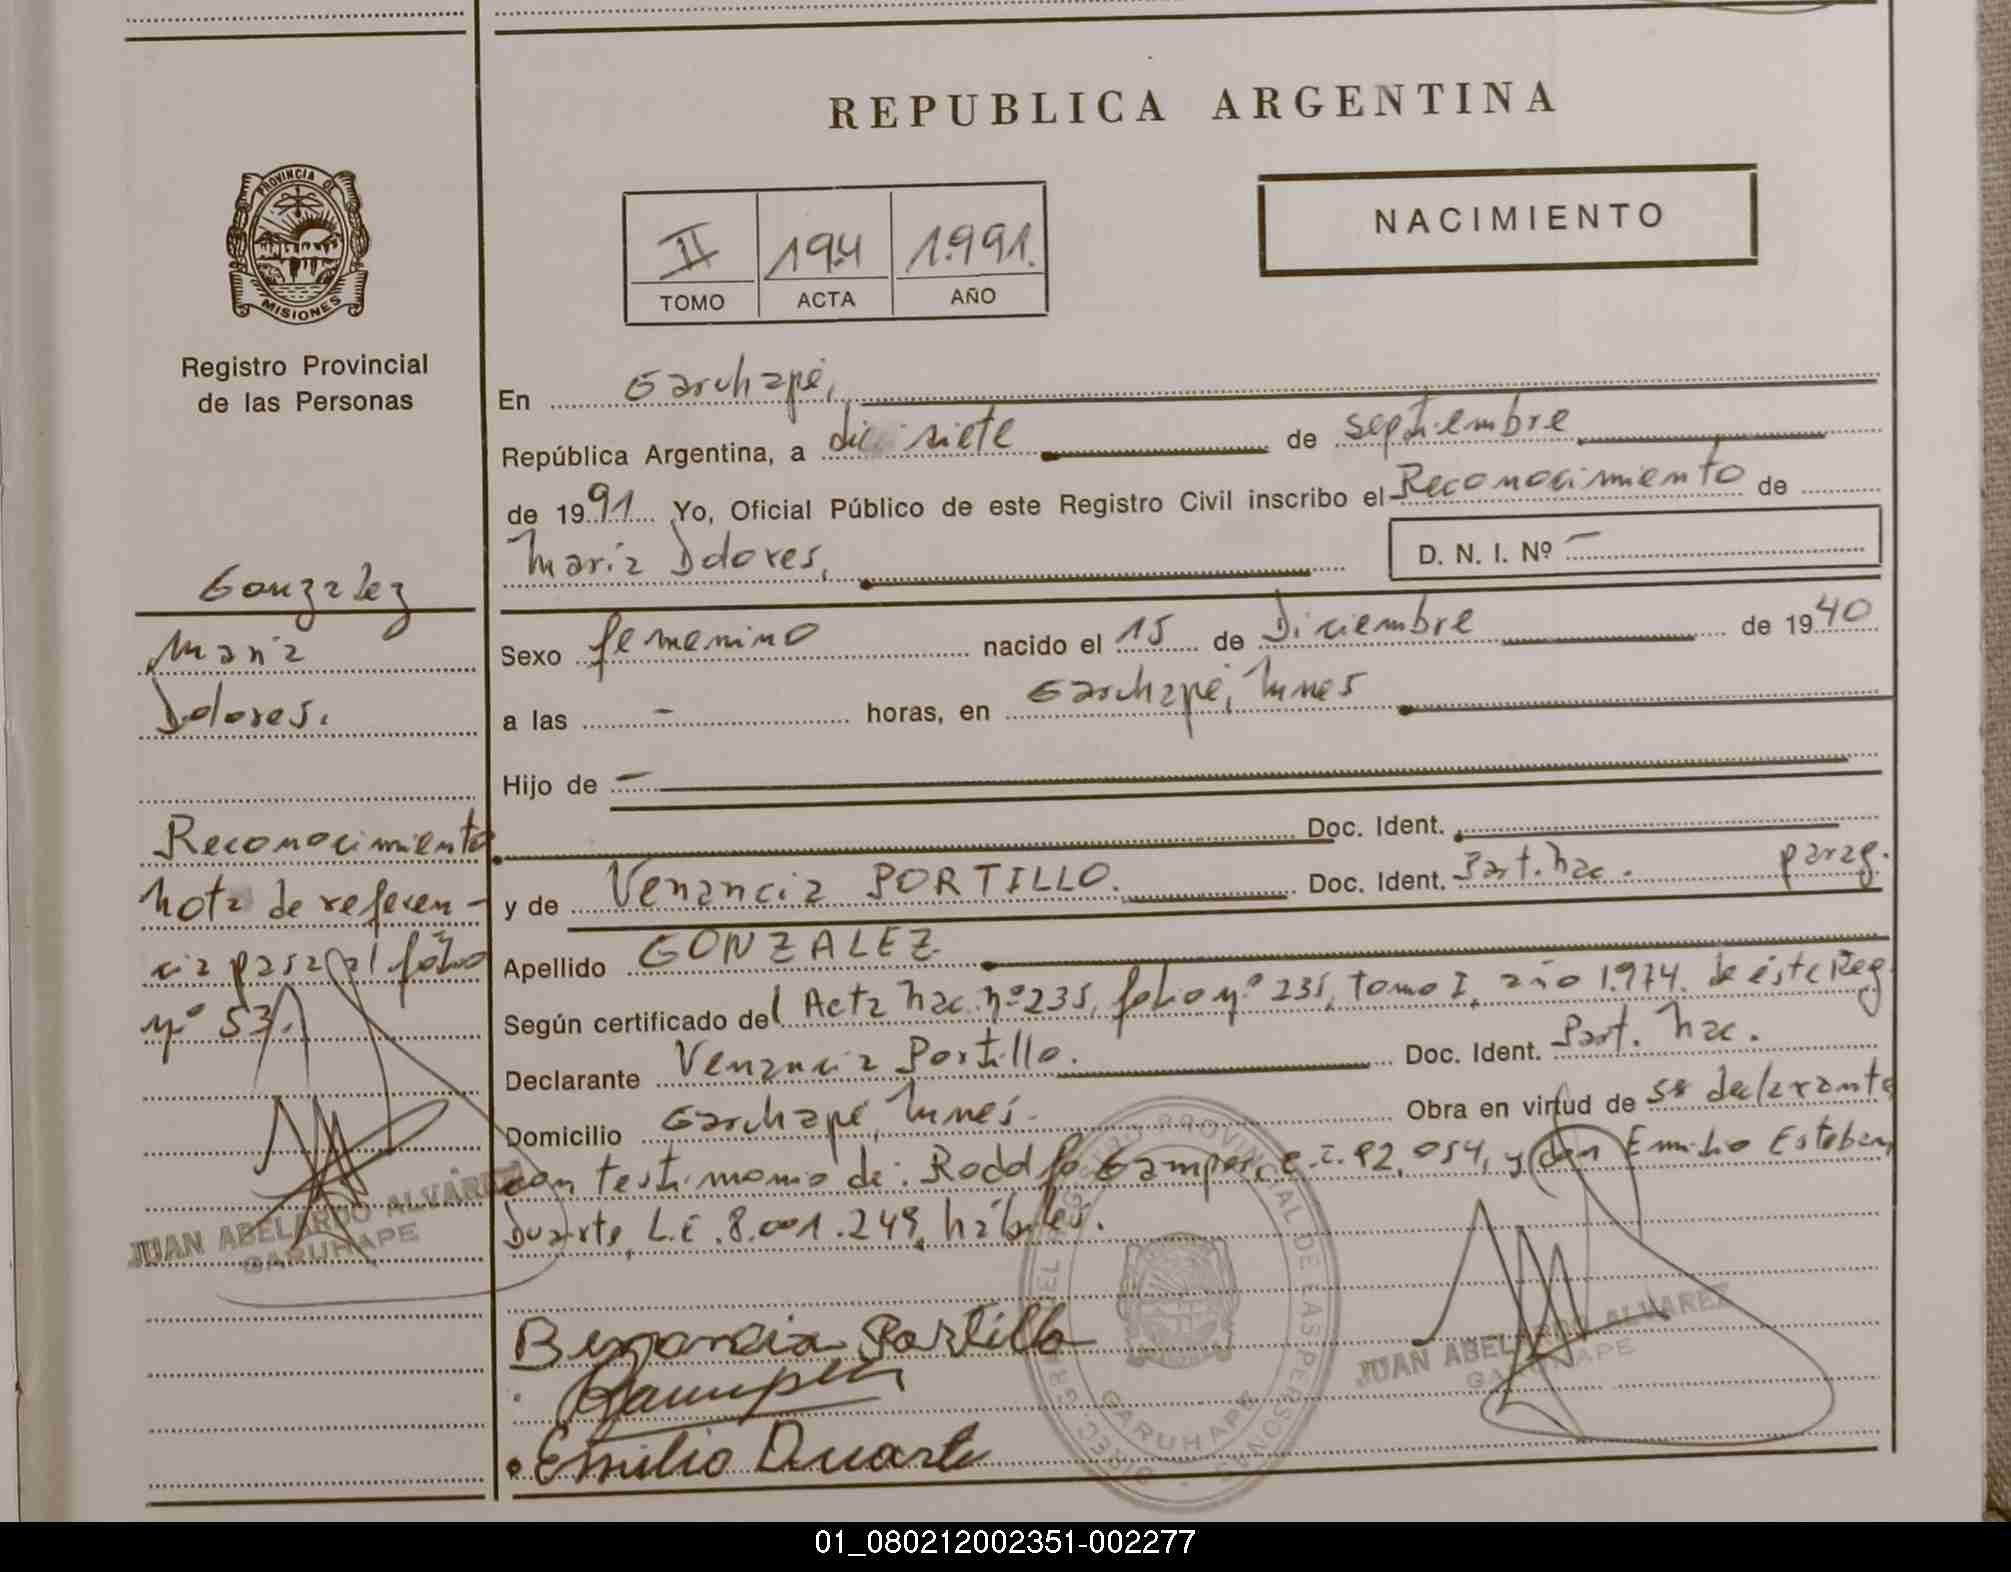 REPUBLICA ARGENTINA
NACIMIENTO
II 194 1.991.
TOMO ACTA AÑO
PROVINCIA DE
MISIONES
Registro Provincial
de las Personas
Gonzalez
Maria
Dolores.
Reconocimiento
Nota de referen-
cia pasa al folio
nº 53.
JUAN ABELARDO ALVAREZ
GARUHAPE
En Garuhapé,
República Argentina, a diecisiete de septiembre
de 1991 Yo, Oficial Público de este Registro Civil inscribo el Reconocimiento de
Maria Dolores, D. N. I. Nº -
Sexo femenino nacido el 15 de Diciembre de 1940
a las - horas, en Garuhapé, Mnes
Hijo de -
Doc. Ident.
y de Venancia PORTILLO. Doc. Ident. Part. Nac. parag.
Apellido GONZALEZ
Según certificado del Acta Nac. nº 235, folio nº 235, tomo I, año 1.974. de éste Reg.
Declarante Venancia Portillo. Doc. Ident. Part. Nac.
Domicilio Garuhapé, Mnes. Obra en virtud de ser declarante
con testimonio de: Rodolfo Gamper, 92.054, y don Emilio Esteban
Duarte, L.E. 8.001.249, hábiles.
Benancia Portillo
Gamper
Emilio Duarte
PROVINCIAL DE LAS PERSONAS
GARUHAPE
JUAN ABELARDO ALVAREZ
GARUHAPE
01_080212002351-002277